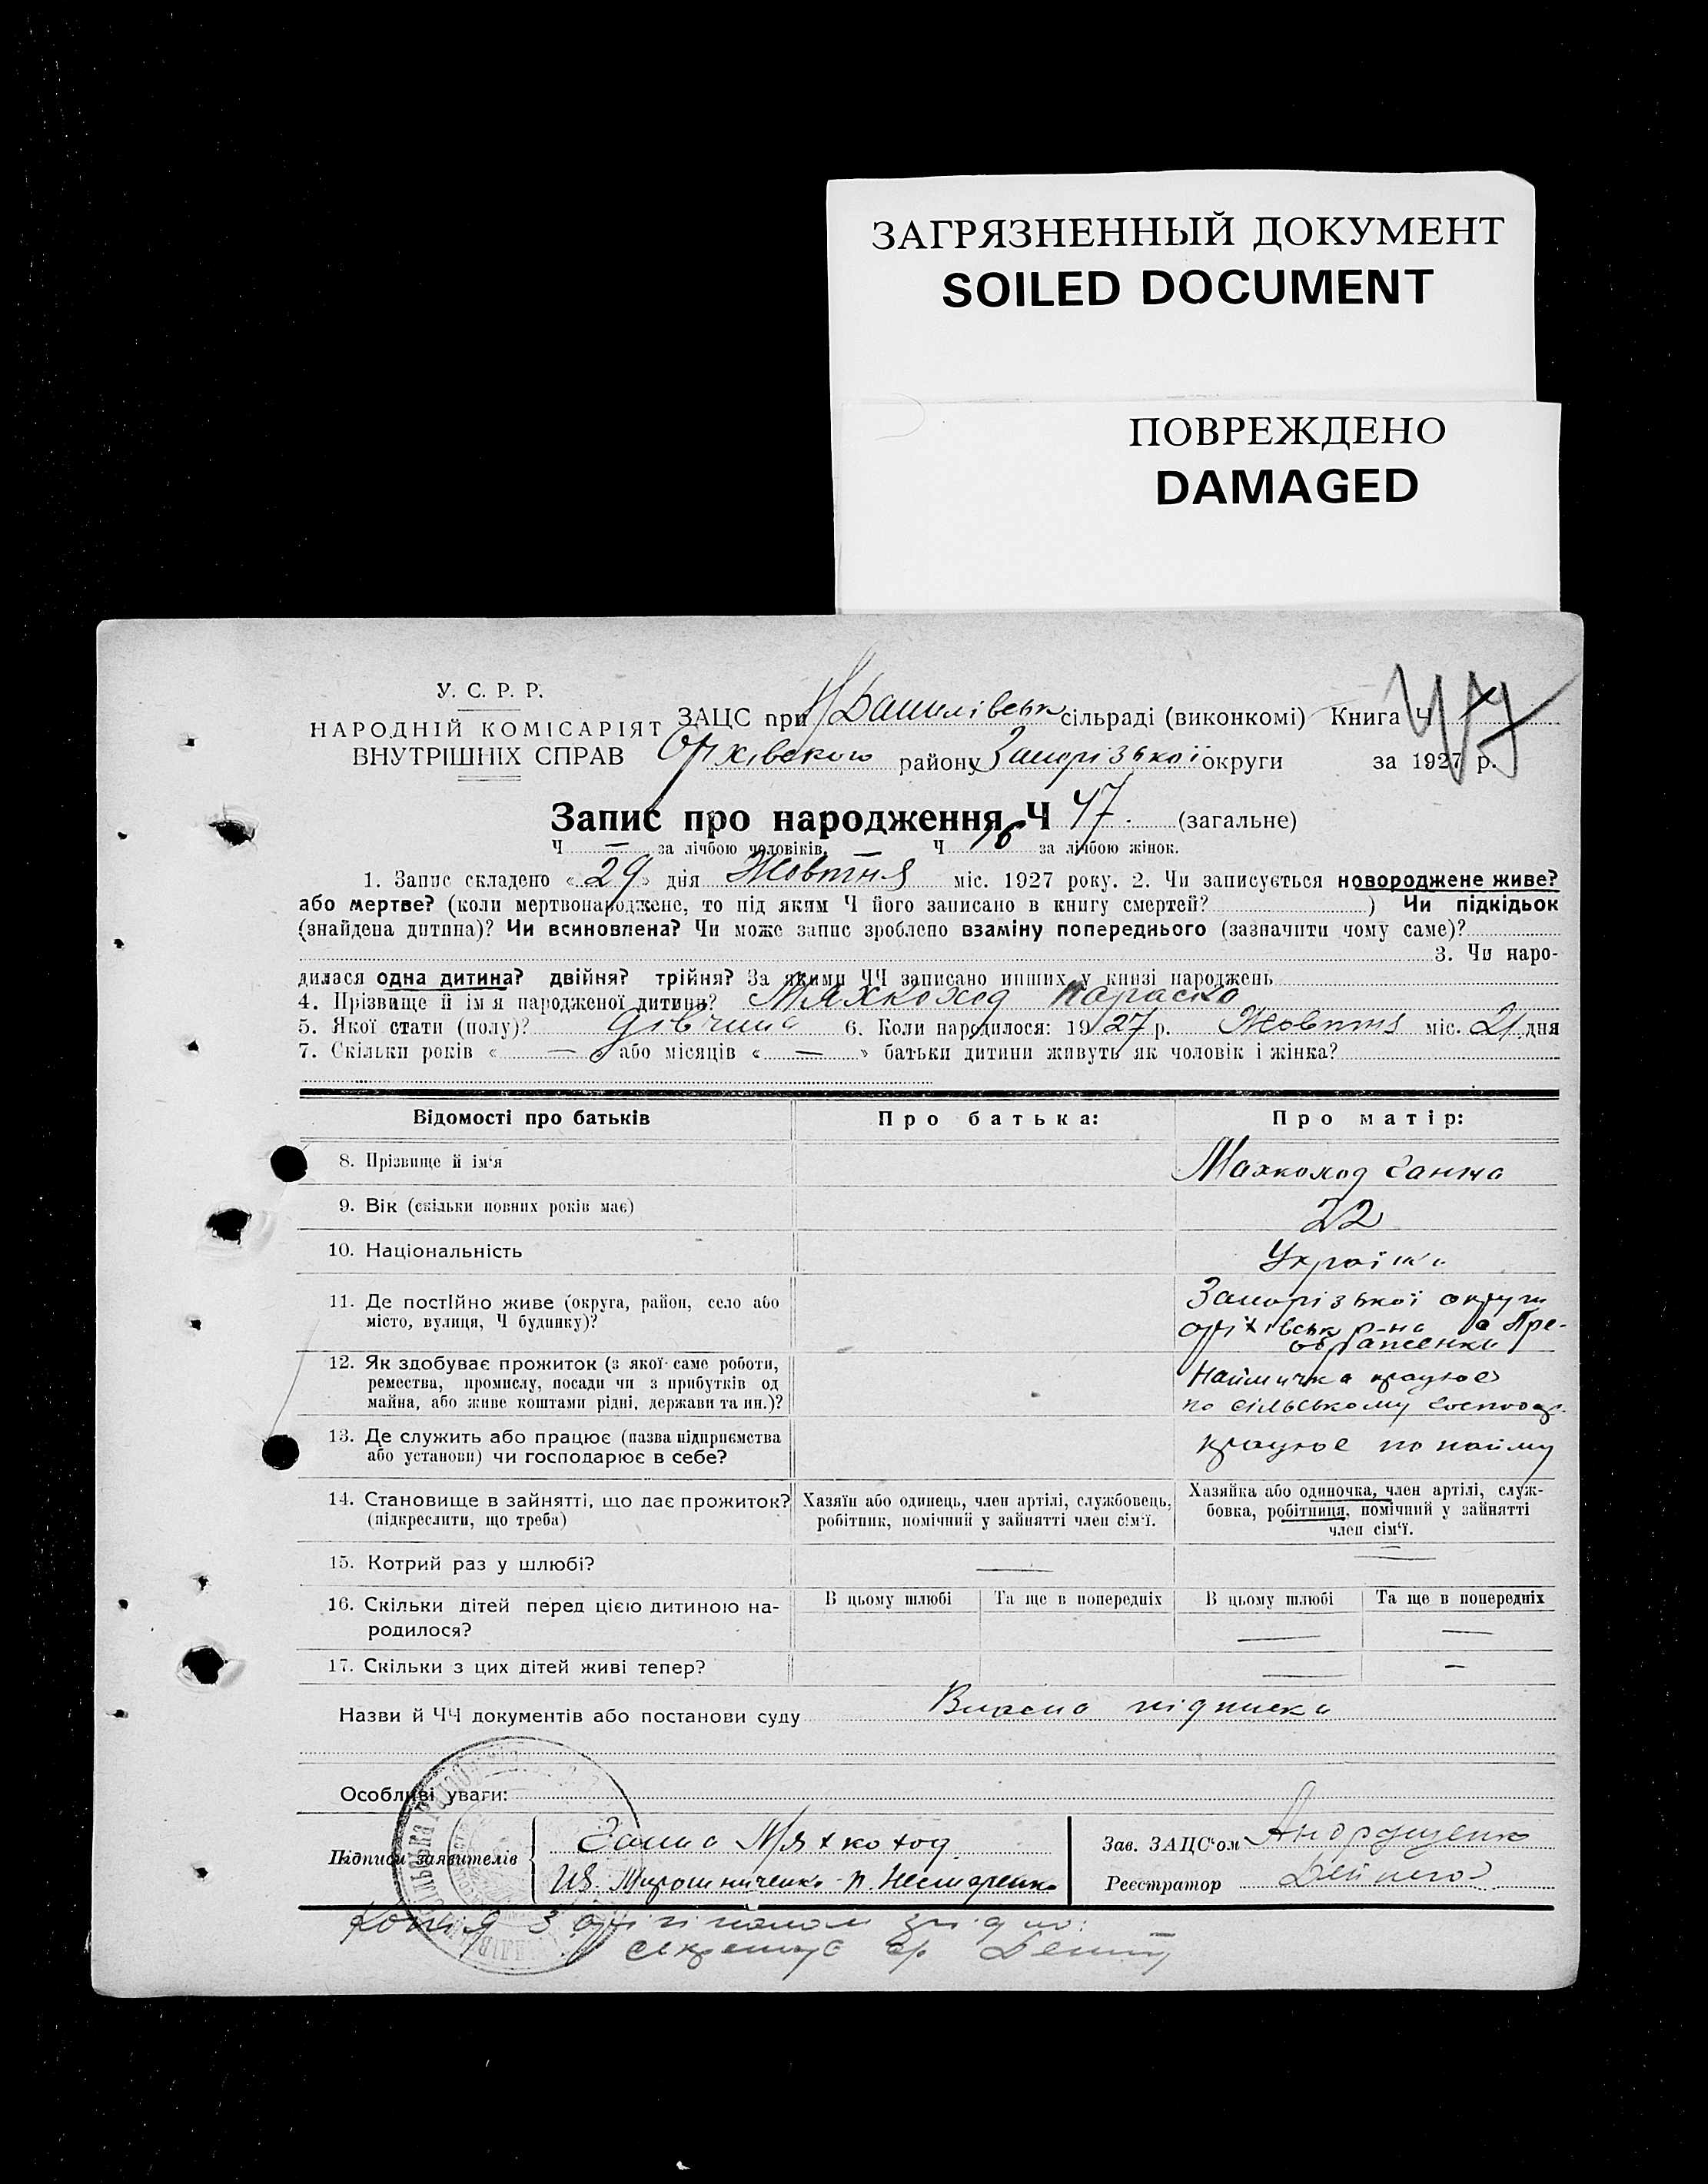 ЗАГРЯЗНЕННЫЙ ДОКУМЕНТ
SOILED DOCUMENT
ПОВРЕЖДЕНО
DAMAGED
У. С. Р. Р.
НАРОДНІЙ КОМІСАРІЯТ
ВНУТРІШНІХ СПРАВ
ЗАЦС при Н Данилівськ сільраді (виконкомі) Книга Ч
47
Оріхівского району Запорізької округи за 1927 р.
Запис про народження Ч 47. (загальне)
Ч — за лічбою чоловіків. Ч 16 за лічбою жінок.
1. Запис складено «29» дня Жовтня міс. 1927 року. 2. Чи записується новороджене живе?
або мертве? (коли мертвонароджене, то під яким Ч його записано в книгу смертей? ) Чи підкідьок
(знайдена дитина)? Чи всиновлена? Чи може запис зроблено взаміну попереднього (зазначити чому саме)?
3. Чи наро-
дилася одна дитина? двійня? трійня? За якими ЧЧ записано инших у книзі народжень
4. Прізвище й ім'я народженої дитини? Мяхкоход Параска
5. Якої стати (полу)? дівчина 6. Коли народилося: 1927 р. Жовтня міс. 21 дня
7. Скільки років « — » або місяців « — » батьки дитини живуть як чоловік і жінка?
Відомості про батьків Про батька: Про матір:
8. Прізвище й ім'я Махкоход Ганна
9. Вік (скільки повних років має) 22
10. Національність Українка
11. Де постійно живе (округа, район, село або
місто, вулиця, Ч будинку)?
Запорізької округи
Оріхівськ р-на с Пре-
ображенка
12. Як здобуває прожиток (з якої саме роботи,
ремества, промислу, посади чи з прибутків од
майна, або живе коштами рідні, держави та ин.)?
Наймичка працює
по сільському господ.
13. Де служить або працює (назва підприємства
або установи) чи господарює в себе?
працює по найму
14. Становище в зайнятті, що дає прожиток?
(підкреслити, що треба)
Хазяїн або одинець, член артілі, службовець,
робітник, помічний у зайнятті член сім'ї.
Хазяйка або одиночка, член артілі, служ-
бовка, робітниця, помічний у зайнятті
член сім'ї.
15. Котрий раз у шлюбі? — —
16. Скільки дітей перед цією дитиною на-
родилося?
В цьому шлюбі Та ще в попередніх В цьому шлюбі Та ще в попередніх
— —
17. Скільки з цих дітей живі тепер? — —
Назви й ЧЧ документів або постанови суду Власна підписка
Особливі уваги:
Підписи заявителів Ганна Мяхкоход
Ив. Мирошниченко П. Нестаренко
Зав. ЗАЦС'ом Андрущенко
Реєстратор
Копія з орігіналом згідно: